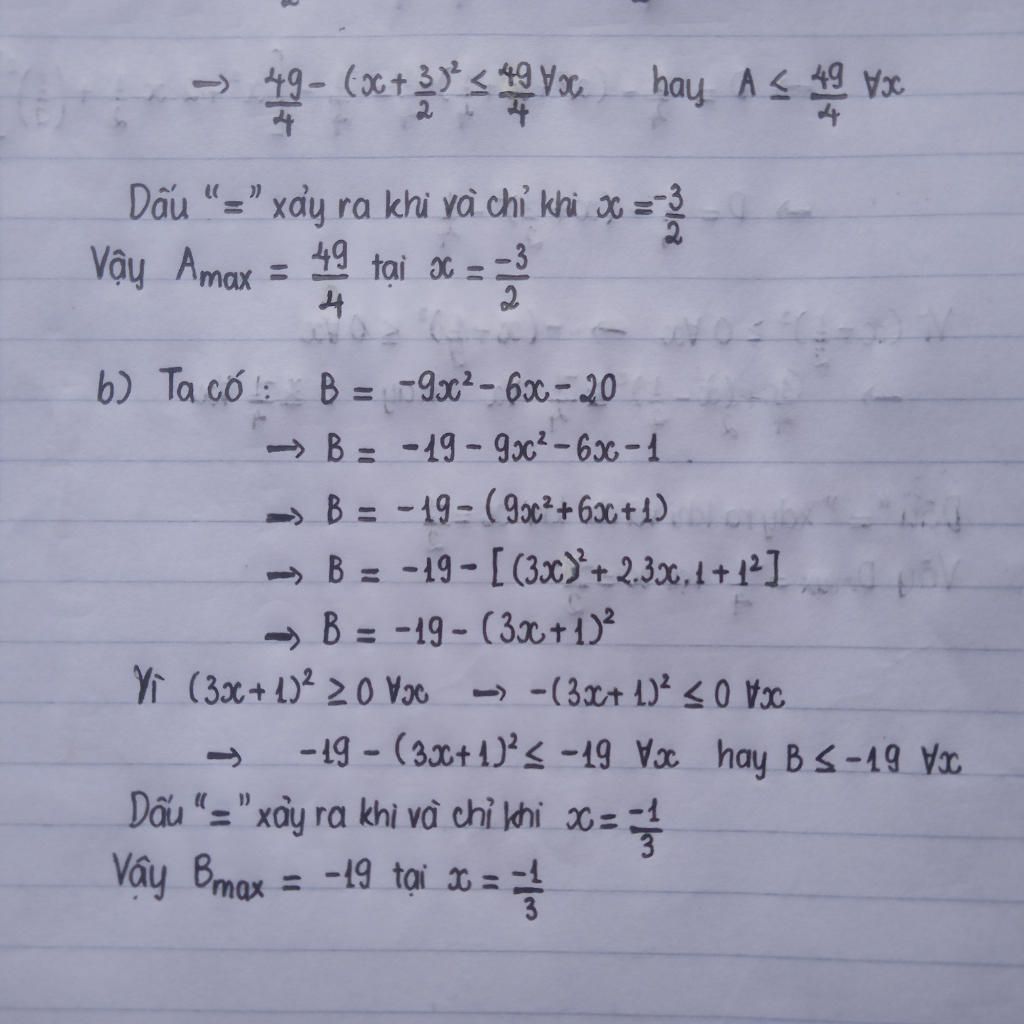 → 49/4 - (x + 3/2)² ≤ 49/4 ∀x hay A ≤ 49/4 ∀x
Dấu "=" xảy ra khi và chỉ khi x = -3/2
Vậy Amax = 49/4 tại x = -3/2
b) Ta có: B = -9x² - 6x - 20
→ B = -19 - 9x² - 6x - 1
→ B = -19 - (9x² + 6x + 1)
→ B = -19 - [(3x)² + 2.3x.1 + 1²]
→ B = -19 - (3x + 1)²
Vì (3x + 1)² ≥ 0 ∀x → -(3x + 1)² ≤ 0 ∀x
→ -19 - (3x + 1)² ≤ -19 ∀x hay B ≤ -19 ∀x
Dấu "=" xảy ra khi và chỉ khi x = -1/3
Vậy Bmax = -19 tại x = -1/3